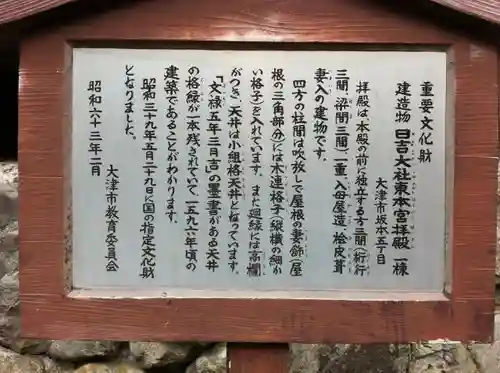 重要文化財
建造物 日吉大社東本宮拝殿 一棟
大津市坂本五丁目
拝殿は、本殿の前に独立する方三間(桁行
三間、梁間三間)、一重、入母屋造、桧皮葺、
妻入の建物です。
四方の柱間は吹放しで屋根の妻飾(屋
根の三角部分)には木連格子(縦横の細か
い格子)を入れています。また廻縁には高欄
がつき、天井は小組格天井となっています。
「文禄五年三月吉」の墨書がある天井
の格縁が一本残されていて、一五九六年頃の
建築であることがわかります。
昭和三十九年五月二十九日に国の指定文化財
となりました。
昭和六十三年二月
大津市教育委員会